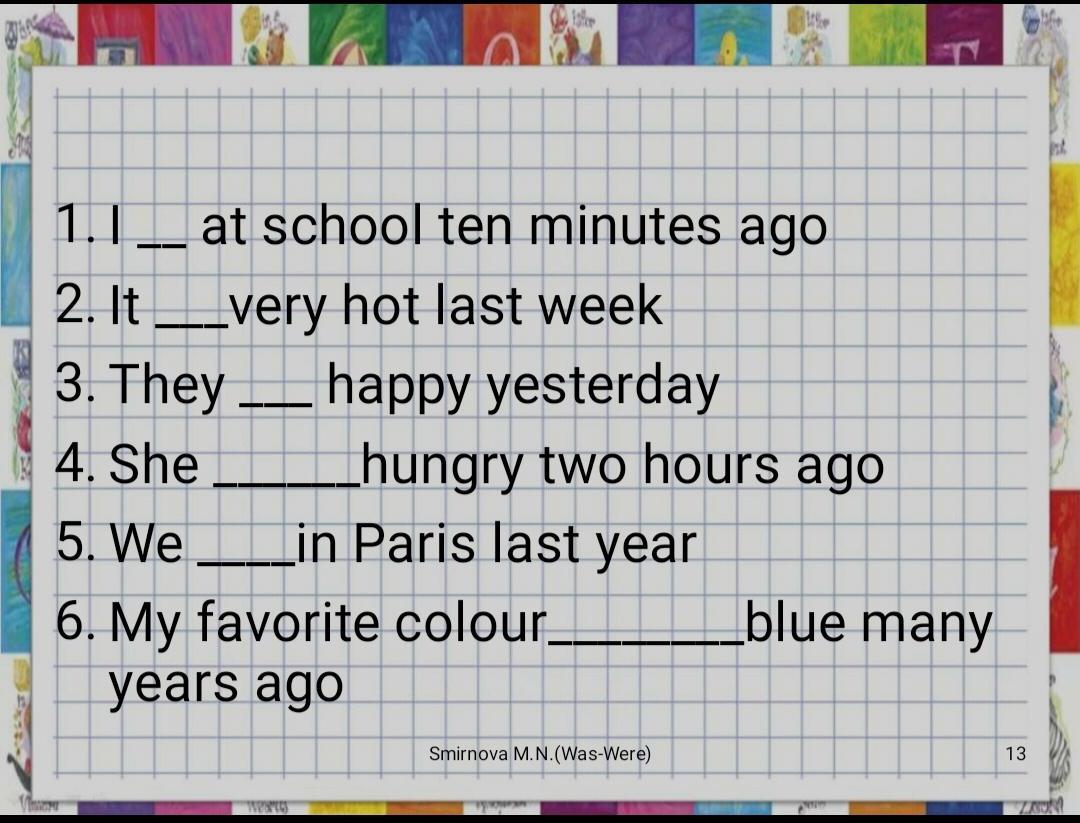 1. I __ at school ten minutes ago
2. It ___very hot last week
3. They ___ happy yesterday
4. She ______hungry two hours ago
5. We ____in Paris last year
6. My favorite colour________blue many
years ago
Smirnova M.N.(Was-Were) 13